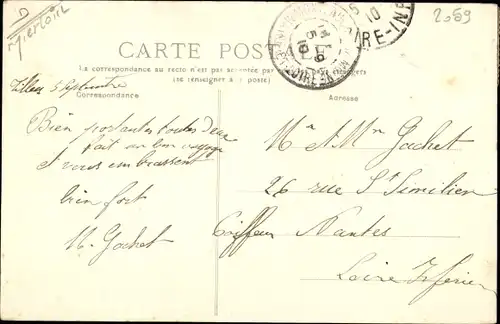 2089
CARTE POSTALE
La correspondance au recto n'est pas acceptée par
(Se renseigner à la poste)
Correspondance
Adresse
5 Septembre
Bien portantes toutes deux
fait un bon voyage
et vous embrassent
bien fort
M. Gachet
M. & Mme Gachet
26 rue St Similien
Coiffeur Nantes
Loire Inférieure